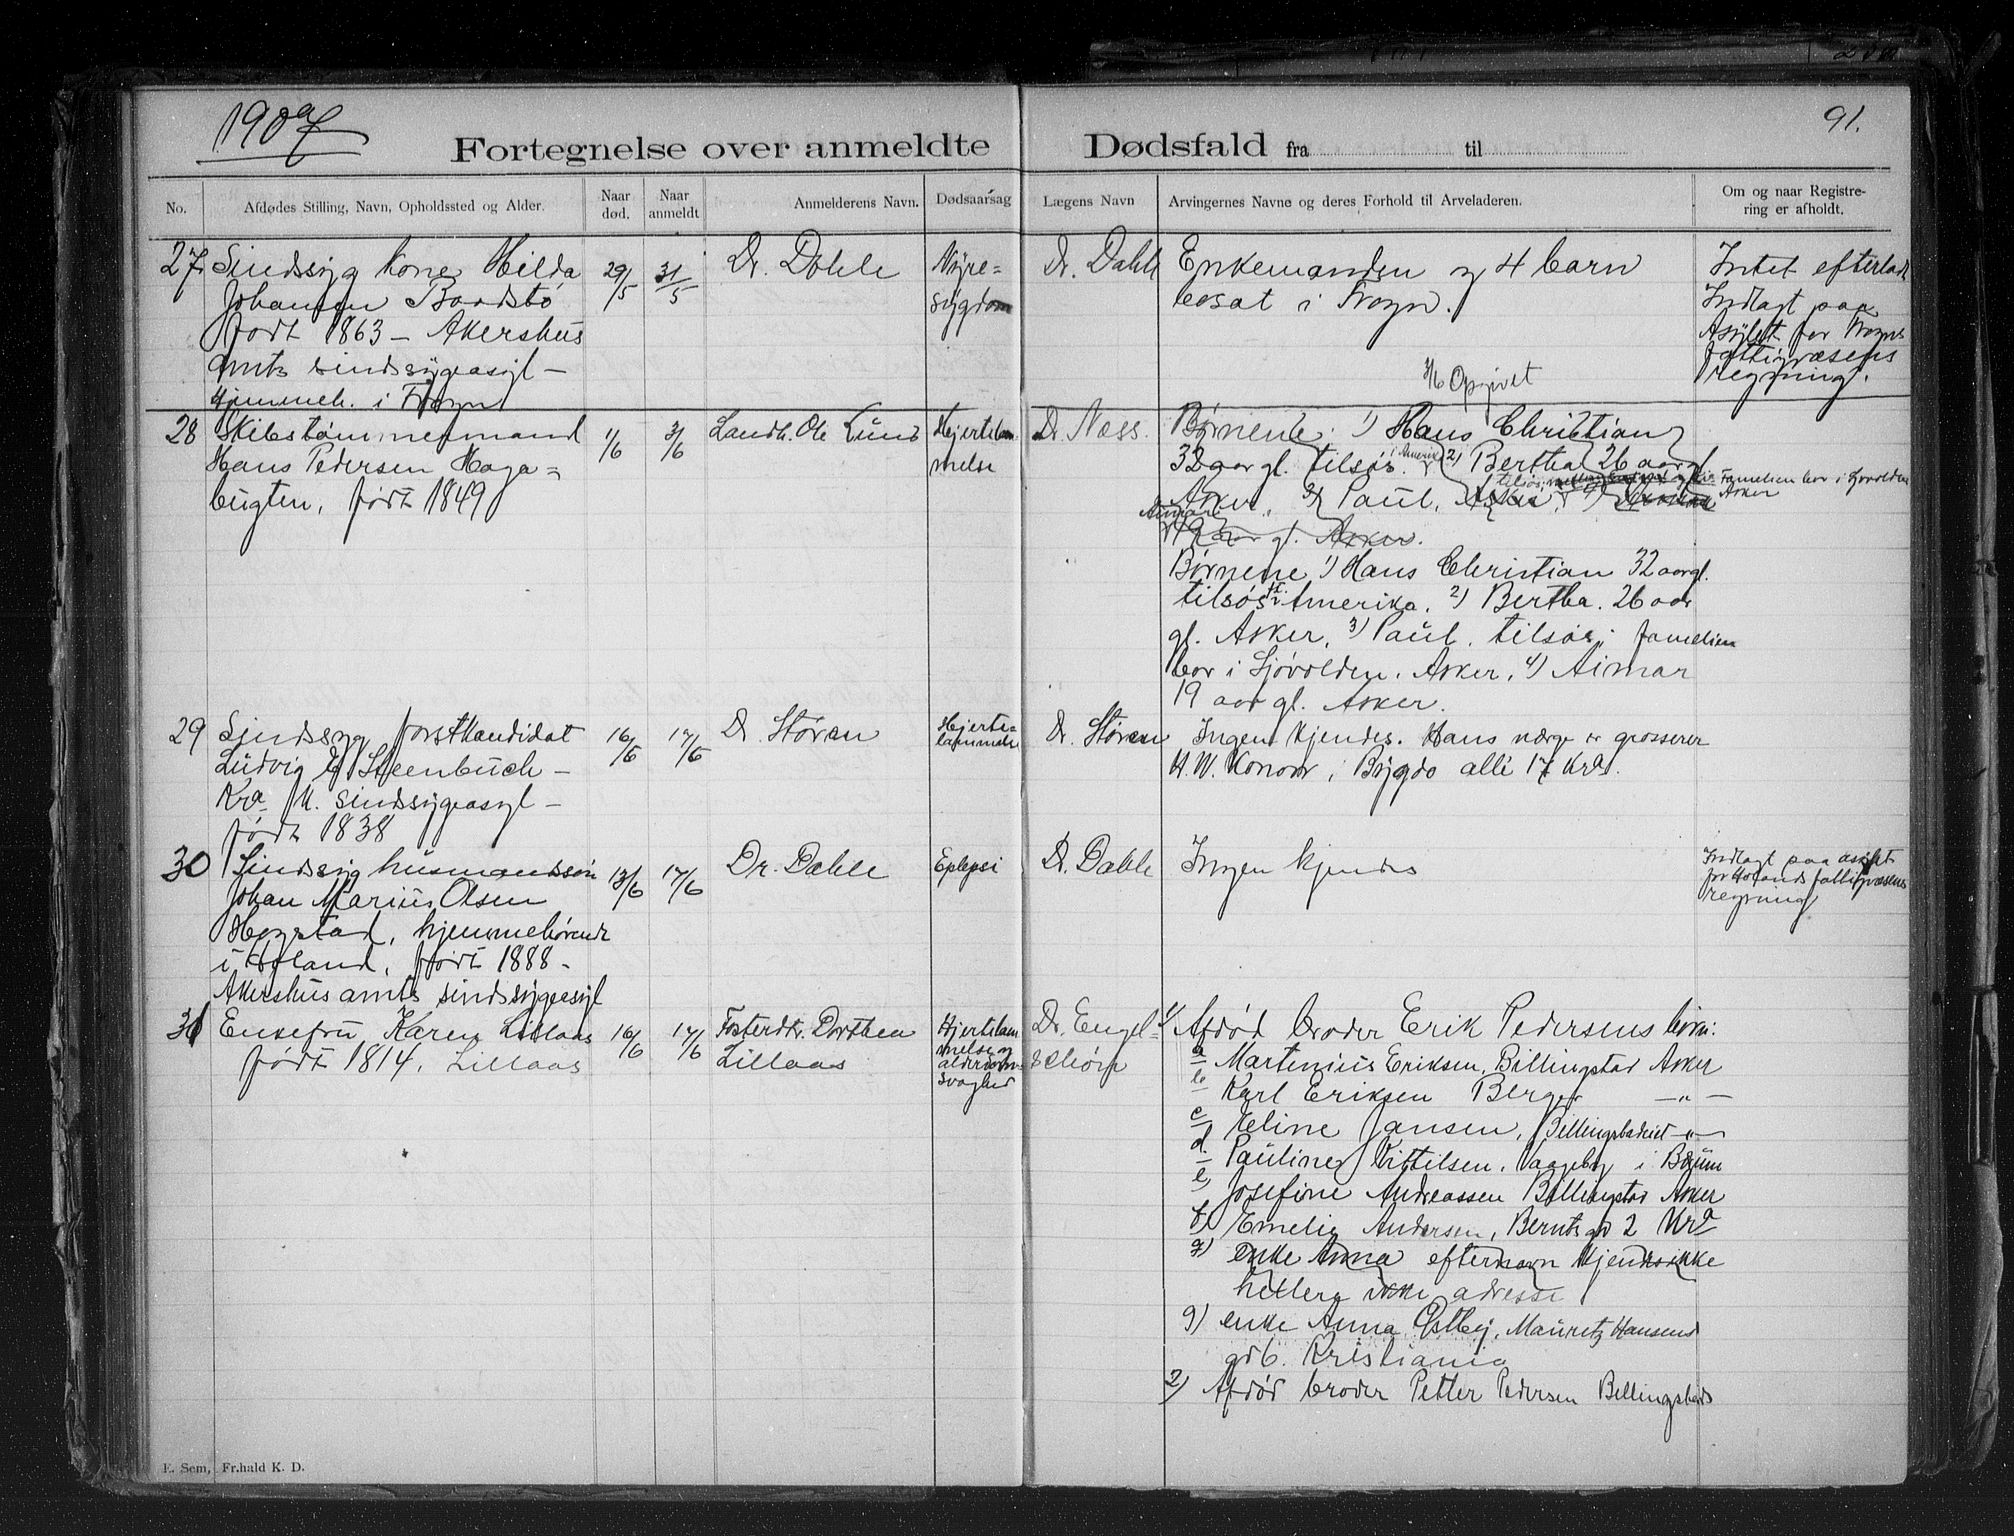 1907
91.
Fortegnelse over anmeldte Dødsfald fra til
No.
Afdødes Stilling, Navn, Opholdssted og Alder.
Naar død.
Naar anmeldt
Anmelderens Navn.
Dødsaarsag
Lægens Navn
Arvingernes Navne og deres Forhold til Arveladeren.
Om og naar Registre-
ring er afholdt.
27. Sindssyg Kone Hilda
Johansen Baadstø
født 1863 – Akershus
amts sindssygeasyl –
hjemmeh. i Frogn
29/5
31/5
Dr. Dahle
Nyre=
sygdom
Dr. Dahle
Enkemanden og 4 barn
bosat i Frogn.
Intet efterladt
Indlagt paa
Asylet for Frogns
fattigvæsens
regning.
3/6 Opgivet
28 Skibstømmermand
Hans Pedersen Haga=
bugten, født 1849
1/6
3/6
Landh. Ole Lund
Hjertelam
melse
Dr. Næss.
Børnene: 1) Hans Christian
32 aar gl. tilsøs. i Amerik 2) Bertha 26 aar gl
Asker, 3) Paul, Asker, 4)
tilsøs
Familien bor i Sjøvolden
Asker
Aimar
19 aar gl. Asker.
Børnene, 1) Hans Christian 32 aar gl.
tilsøs Amerika. 2) Bertha. 26 aar
gl. Asker, 3) Paul. tilsøs; familien
bor i Sjøvolden. Asker, 4) Aimar
19 aar gl. Asker.
29 Sindssyg forstkandidat
Ludvig E Steenbuch –
Kra K. sindssygeasyl –
født 1838
16/6
17/6
Dr. Støren
Hjerte=
lammelse
Dr. Støren
Ingen kjendes. Hans værge er grosserer
H. W. Konow, Bygdø alle 17 Kra.
30 Sindssyg husmandssøn
Johan Marius Olsen
Hogstad, hjemmehørende
i Høland, født 1888 –
Akershus amts sindssygeasyl
13/6
17/6
Dr. Dahle
Eplepsi
Dr. Dahle
Ingen kjendes
Indlagt paa asylet
for Hølands fattigvæsens
regning
31 Enkefru Karen Lillaas
født 1814. Lillaas
16/6
17/6
Fosterdtr. Dorthea
Lillaas
Hjertelam
melse og
alderdoms-
svaghed
Dr. Engel=
schiøn
1/ Afdød broder Erik Pedersens børn:
a Martinius Eriksen, Billingstad Asker
b Karl Eriksen Berger – „ –
c Eline Jansen, Billingsbadeiet – „ –
d. Pauline Kittilsen. Vaageby i Bærum
e, Josefine Andreassen Billingstad Asker
f, Emelie Andersen, Bernts gd 2 Kra
g) enke Anna efternavn kjendes ikke
hellere ikke adresse
g) enke Anna Østby, Mauritz Hansens
gd 6. Kristiania
2) Afdød broder Petter Pedersen Billingsbads
E. Sem, Fr.hald K. D.